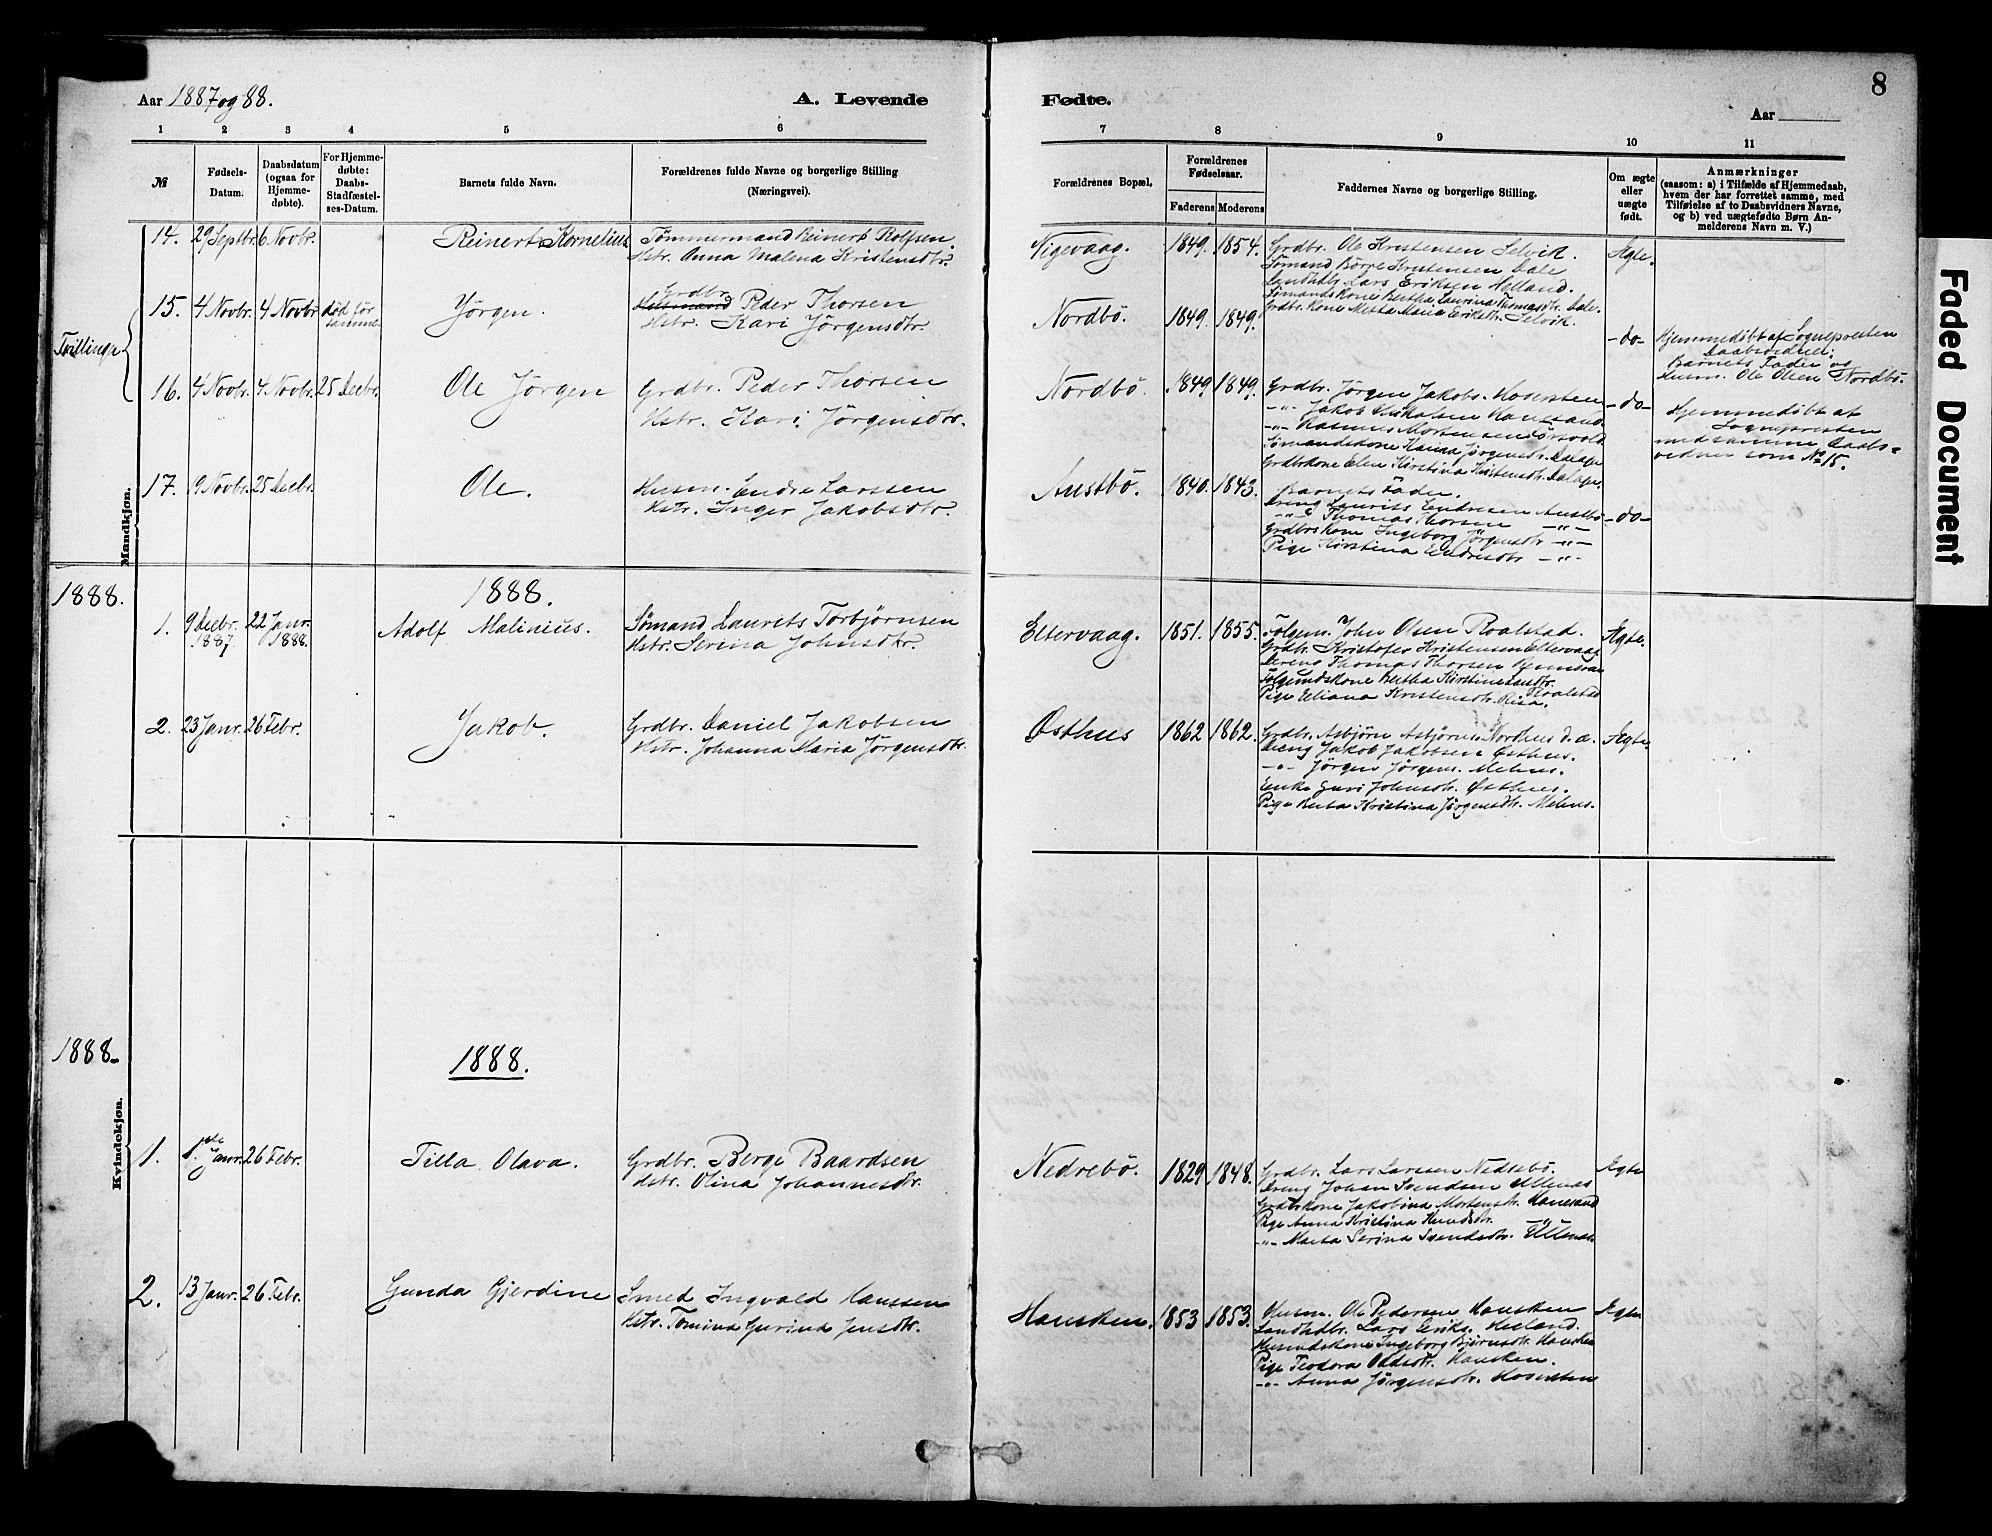 8
Aar 1887 og 88.
A. Levende
Fødte.
Aar
1 2 3 4 5 6 7 8 9 10 11
№
Fødsels-
Datum.
Daabsdatum
(ogsaa for
Hjemme-
døbte).
For Hjemme-
døbte:
Daabs-
Stadfæstel-
ses-Datum.
Barnets fulde Navn.
Forældrenes fulde Navne og borgerlige Stilling
(Næringsvei).
Forældrenes Bopæl.
Forældrenes
Fødselsaar.
Faderens Moderens
Faddernes Navne og borgerlige Stilling.
Om ægte
eller
uægte
født.
Anmærkninger
(saasom: a) i Tilfælde af Hjemmedaab,
hvem der har forrettet samme, med
Tilføielse af to Daabsvidners Navne,
og b) ved uægtefødte Børn An-
melderens Navn m. V.)
Mandkjøn.
14. 29 Septbr. 6 Novbr. Reinert Kornelius
Tömmermand Reinert Rolfsen.
Hstr. Anna Malena Kristensdtr.
Vigevaag. 1849. 1854.
Grdbr. Ole Kristensen Selvik.
Sömand Börge Kristensen Dale
Landhdlr. Lars Eriksen Helland.
Sömandskone Bertha Laurina Thomasdtr. Dale.
Grdbr. Kone Marta Maria Eriksdtr. Selvik.
Ægte.
Tvillinger
15. 4 Novbr. 4 Novbr. död för
samme
Jörgen.
Grdbr.
Peder Thorsen
Hstr. Kari Jörgensdtr.
Nordbö. 1849. 1849.
-do-
Hjemmedöbt af Sognepresten
Daabsvidner:
Barnets Fader og
Husm. Ole Olsen Nordbö.
16. 4 Novbr. 4 Novbr. 25 Decbr. Ole Jörgen
Grdbr. Peder Thorsen
Hstr. Kari Jörgensdtr.
Nordbö 1849 1849.
Grdbr. Jörgen Jakobs. Vodersten
-"- Jakob Hanesand
-"- Rasmus Mortensen
Sömandskone Hanna Jörgensdtr. Dalage
Grdbrkone Elen Kirstina Kristensdtr. Dalage.
-do-
Hjemmedöbt af
Sognepresten
med samme Daabs-
vidner som № 15.
17. 9 Novbr. 25 Decbr. Ole.
Husm. Endre Larssen
Hstr. Inger Jakobsdtr.
Austbö. 1840. 1843.
Barnets Fader.
Dreng Laurits Endresen Austbö
-"- Thomas Thorsen -"-
Grdbrs Kone Ingeborg Jörgensdtr -"-
Pige Kirstina Endresdtr -"-
-do-
1888.
1888.
1. 9 Decbr.
1887
22 Janr.
1888.
Adolf Malinius.
Sömand Laurits Torbjörnsen
Hstr. Serina Johnsdtr.
Eltervaag. 1851. 1855.
Folgem. John Olsen Roalstad.
Grdbr. Kristofer Kristensen Eltervaag
Dreng Thomas Thorsen Rennören
Folgemdskone Bertha Kirstine Larsdtr.
Roalstad
Pige Eliana Kristensdtr. Risa.
Ægte.
2. 23 Janr. 26 Febr. Jakob.
Grdbr. Daniel Jakobsen
Hstr. Johanna Maria Jörgensdtr.
Østhus 1862 1862.
Grdbr. Asbjörn Asbjörns. Nordhus d. æ.
Dreng Jakob Jakobsen Østhus.
-"- Jörgen Jörgens. Mehus.
Enke Guri Johnsdtr. Østhus.
Pige Berta Kristina Jörgensdtr. Mehus.
Ægte
1888-
1888.
Kvindekjøn.
1. 1ste Janr. 26 Febr. Tilla Olava.
Grdbr. Berge Baardsen
Hstr. Olina Johannesdtr.
Nedrebö. 1829 1848.
Grdbr. Lars Larssen Nedrebö.
Dreng Johan Svendsen Ullenæs
Grdbrkone Jakobina Mortensdtr. Hanesand
Pige Anna Kristina Knudsdtr.
-"- Marta Serina Svendsdtr. Ullenæs
Ægte
2. 13 Janr. 26 Febr. Gunda Gjerdine
Smed Ingvald Hanssen
Hstr. Tomina Gurina Jensdtr.
Hansken. 1853 1853.
Husm. Ole Pedersen Hansken
Landhdlr. Lars Eriks. Helland.
Husmdskone Ingeborg Björnsdtr. Hansken
Pige Teodora Oddsdtr. Hansken.
-"- Anna Jörgensdtr. Voderstein
Ægte
Faded Document